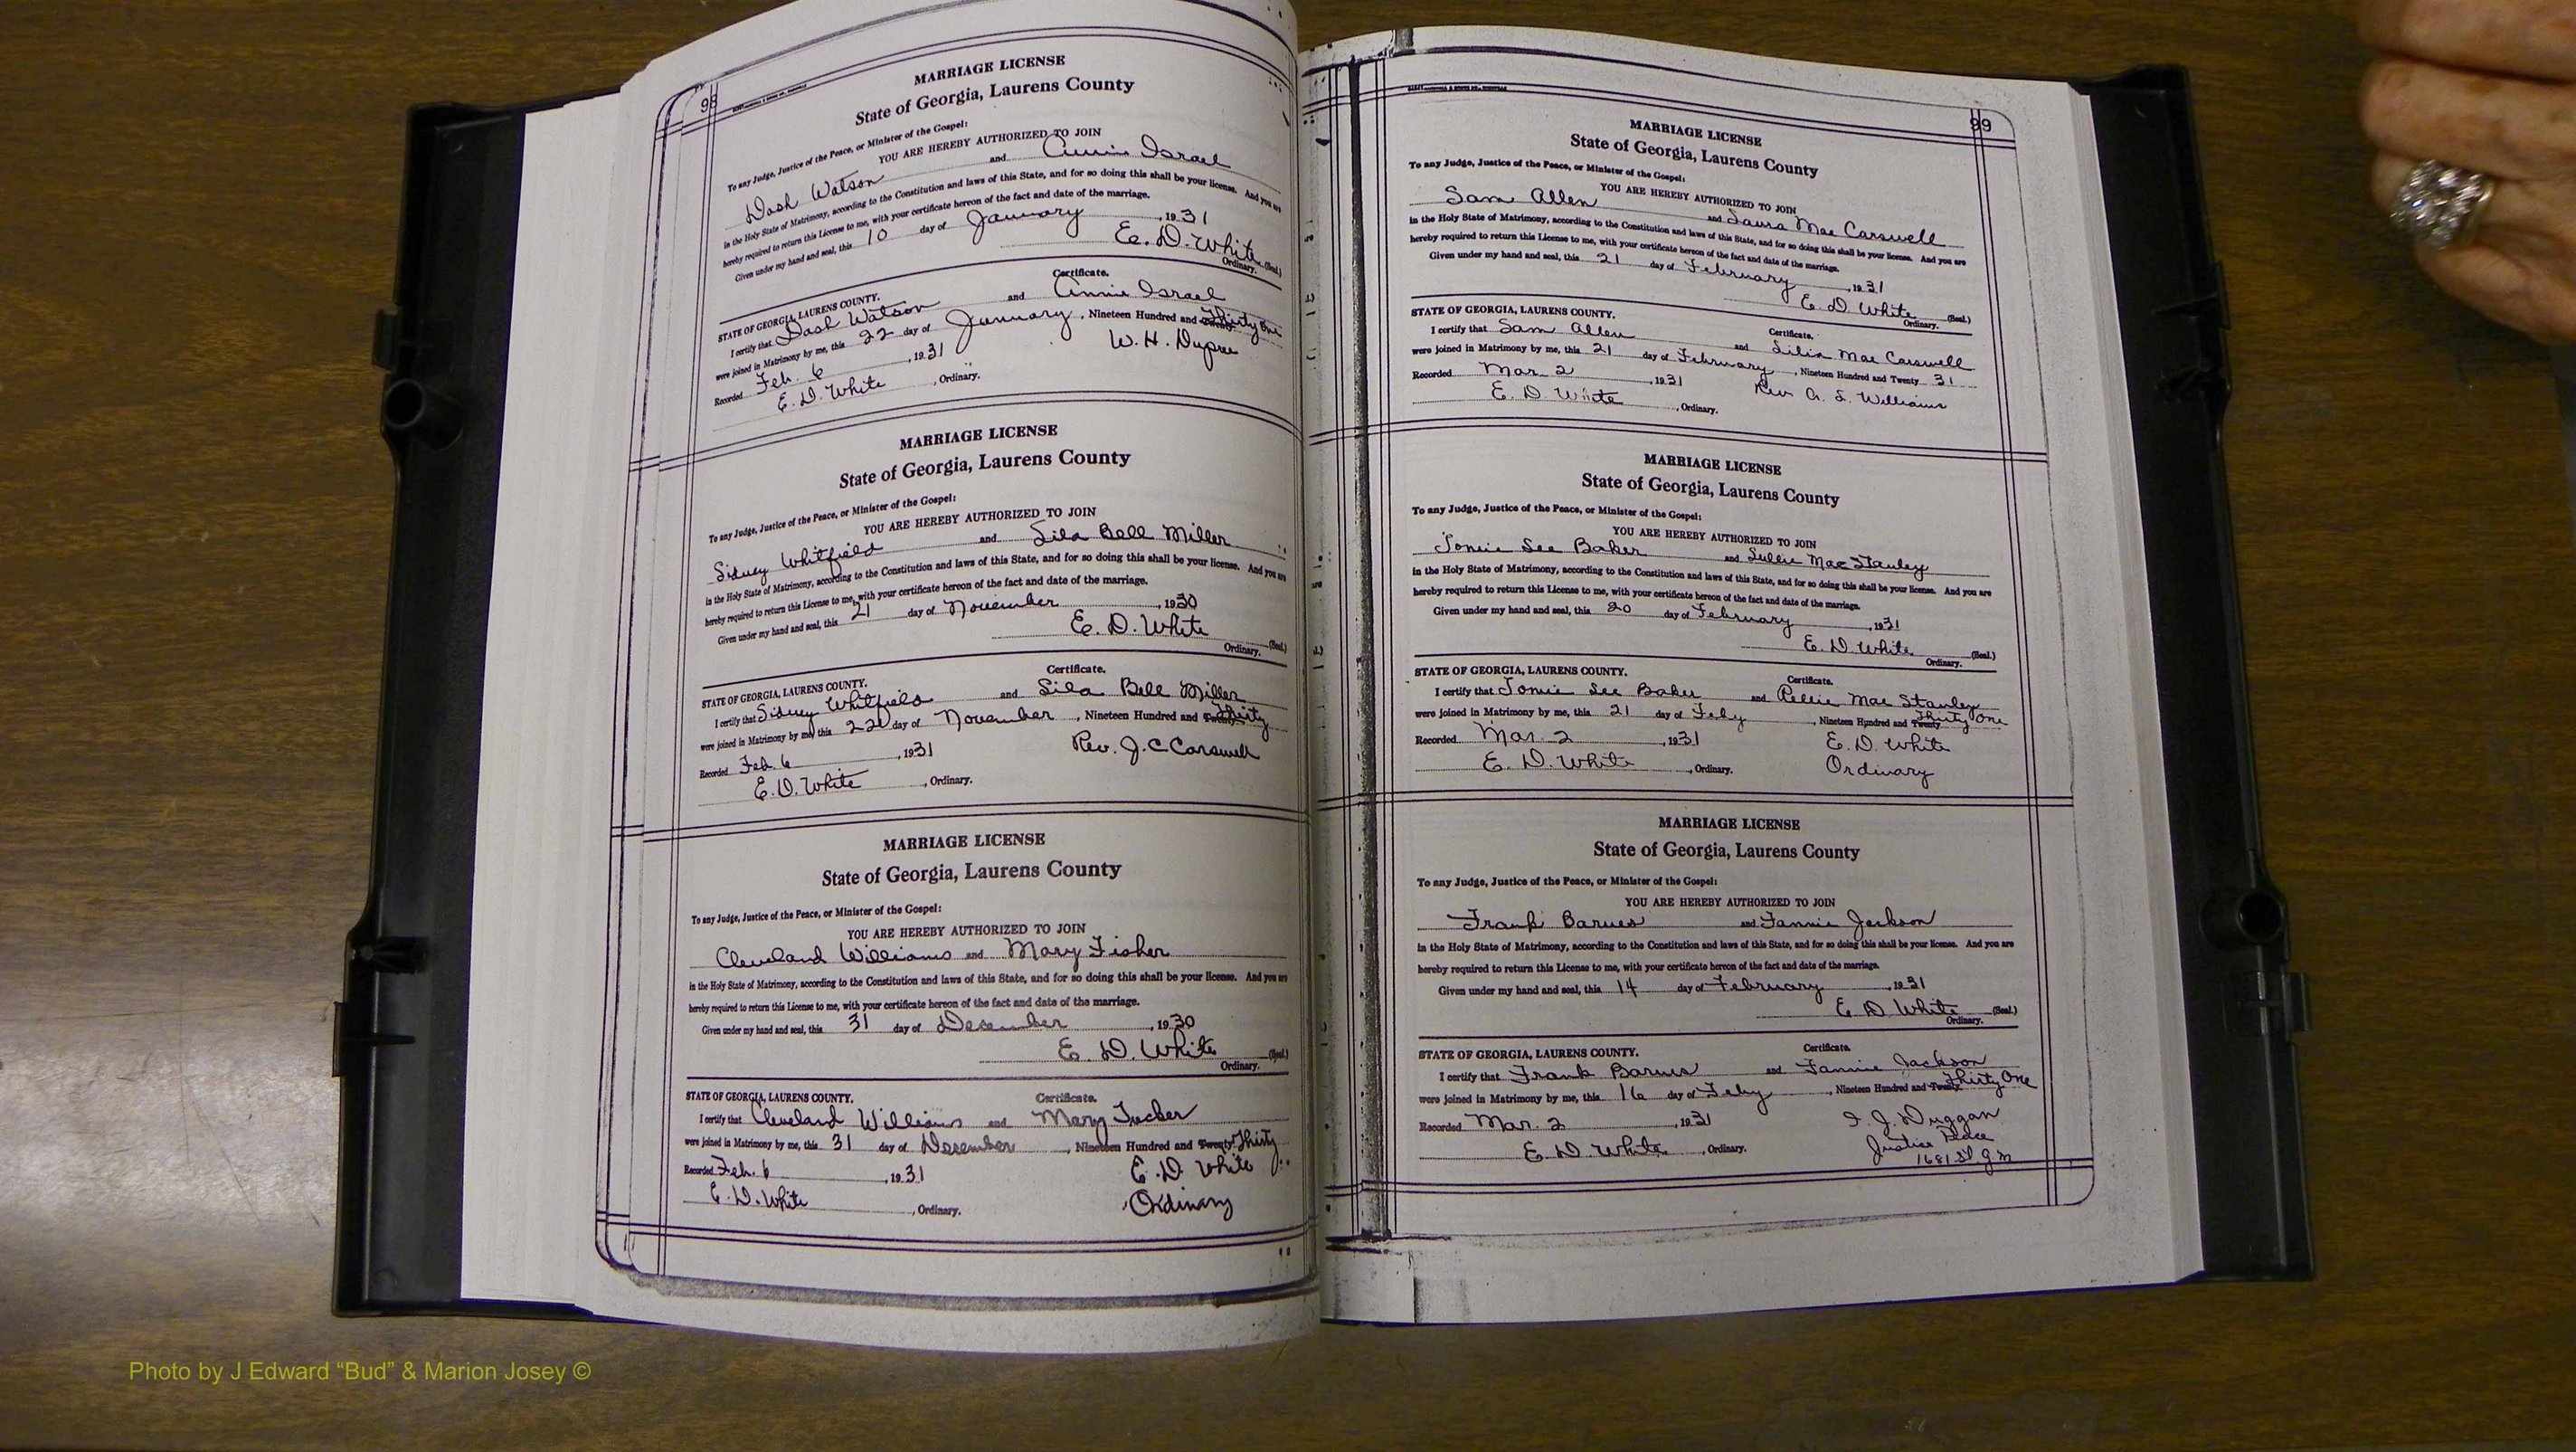 98
MARRIAGE LICENSE
State of Georgia, Laurens County
To any Judge, Justice of the Peace, or Minister of the Gospel:
YOU ARE HEREBY AUTHORIZED TO JOIN
Dash Watson and Annie Israel
in the Holy State of Matrimony, according to the Constitution and laws of this State, and for so doing this shall be your license. And you are
hereby required to return this License to me, with your certificate hereon of the fact and date of the marriage.
Given under my hand and seal, this 10 day of January, 1931
E. D. White (Seal.)
Ordinary.
Certificate.
STATE OF GEORGIA, LAURENS COUNTY.
I certify that Dash Watson and Annie Israel
were joined in Matrimony by me, this 22 day of January, Nineteen Hundred and Twenty Thirty One
Recorded Feb. 6, 1931 W. H. Dupree
E. D. White, Ordinary.
MARRIAGE LICENSE
State of Georgia, Laurens County
To any Judge, Justice of the Peace, or Minister of the Gospel:
YOU ARE HEREBY AUTHORIZED TO JOIN
Sidney Whitfield and Lila Bell Miller
in the Holy State of Matrimony, according to the Constitution and laws of this State, and for so doing this shall be your license. And you are
hereby required to return this License to me, with your certificate hereon of the fact and date of the marriage.
Given under my hand and seal, this 21 day of November, 1930
E. D. White (Seal.)
Ordinary.
Certificate.
STATE OF GEORGIA, LAURENS COUNTY.
I certify that Sidney Whitfield and Lila Bell Miller
were joined in Matrimony by me, this 22 day of November, Nineteen Hundred and Twenty Thirty
Recorded Feb. 6, 1931 Rev. J. C Carswell
E. D. White, Ordinary.
MARRIAGE LICENSE
State of Georgia, Laurens County
To any Judge, Justice of the Peace, or Minister of the Gospel:
YOU ARE HEREBY AUTHORIZED TO JOIN
Cleveland Williams and Mary Fisher
in the Holy State of Matrimony, according to the Constitution and laws of this State, and for so doing this shall be your license. And you are
hereby required to return this License to me, with your certificate hereon of the fact and date of the marriage.
Given under my hand and seal, this 31 day of December, 1930
E. D. White (Seal.)
Ordinary.
STATE OF GEORGIA, LAURENS COUNTY. Certificate.
I certify that Cleveland Williams and Mary Tucker
were joined in Matrimony by me, this 31 day of December, Nineteen Hundred and Twenty Thirty
Recorded Feb. 6, 1931 E. D. White
E. D. White, Ordinary. Ordinary
99
MARRIAGE LICENSE
State of Georgia, Laurens County
To any Judge, Justice of the Peace, or Minister of the Gospel:
YOU ARE HEREBY AUTHORIZED TO JOIN
Sam Allen and Laura Mae Carswell
in the Holy State of Matrimony, according to the Constitution and laws of this State, and for so doing this shall be your license. And you are
hereby required to return this License to me, with your certificate hereon of the fact and date of the marriage.
Given under my hand and seal, this 21 day of February, 1931
E. D. White (Seal.)
Ordinary.
STATE OF GEORGIA, LAURENS COUNTY.
Certificate.
I certify that Sam Allen and Lilia Mae Carswell
were joined in Matrimony by me, this 21 day of February, Nineteen Hundred and Twenty 31
Recorded Mar. 2, 1931 Rev G. L. Williams
E. D. White, Ordinary.
MARRIAGE LICENSE
State of Georgia, Laurens County
To any Judge, Justice of the Peace, or Minister of the Gospel:
YOU ARE HEREBY AUTHORIZED TO JOIN
Tomie Lee Baker and Mae Stanley
in the Holy State of Matrimony, according to the Constitution and laws of this State, and for so doing this shall be your license. And you are
hereby required to return this License to me, with your certificate hereon of the fact and date of the marriage.
Given under my hand and seal, this 20 day of February, 1931
E. D. White (Seal.)
Ordinary.
STATE OF GEORGIA, LAURENS COUNTY.
Certificate.
I certify that Tomie Lee Baker and Mae Stanley
were joined in Matrimony by me, this 21 day of Feby, Nineteen Hundred and Twenty Thirty One
Recorded Mar. 2, 1931 E. D. White
E. D. White, Ordinary. Ordinary
MARRIAGE LICENSE
State of Georgia, Laurens County
To any Judge, Justice of the Peace, or Minister of the Gospel:
YOU ARE HEREBY AUTHORIZED TO JOIN
Frank Barnes and Fannie Jackson
in the Holy State of Matrimony, according to the Constitution and laws of this State, and for so doing this shall be your license. And you are
hereby required to return this License to me, with your certificate hereon of the fact and date of the marriage.
Given under my hand and seal, this 14 day of February, 1931
E. D. White (Seal.)
Ordinary.
STATE OF GEORGIA, LAURENS COUNTY. Certificate.
I certify that Frank Barnes and Fannie Jackson
were joined in Matrimony by me, this 16 day of Feby, Nineteen Hundred and Twenty Thirty One
Recorded Mar. 2, 1931 J. Duggan
E. D. White, Ordinary. Justice Peace
Photo by J Edward “Bud” & Marion Josey ©